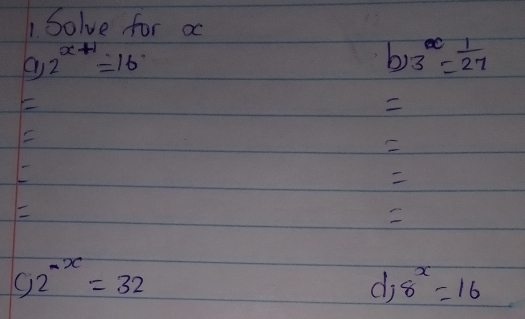 1. Solve for x
a) 2^{x+1} = 16
b) 3^x = 1/27
=
=
=
=
=
=
=
=
c) 2^{-x} = 32
d) 8^x = 16